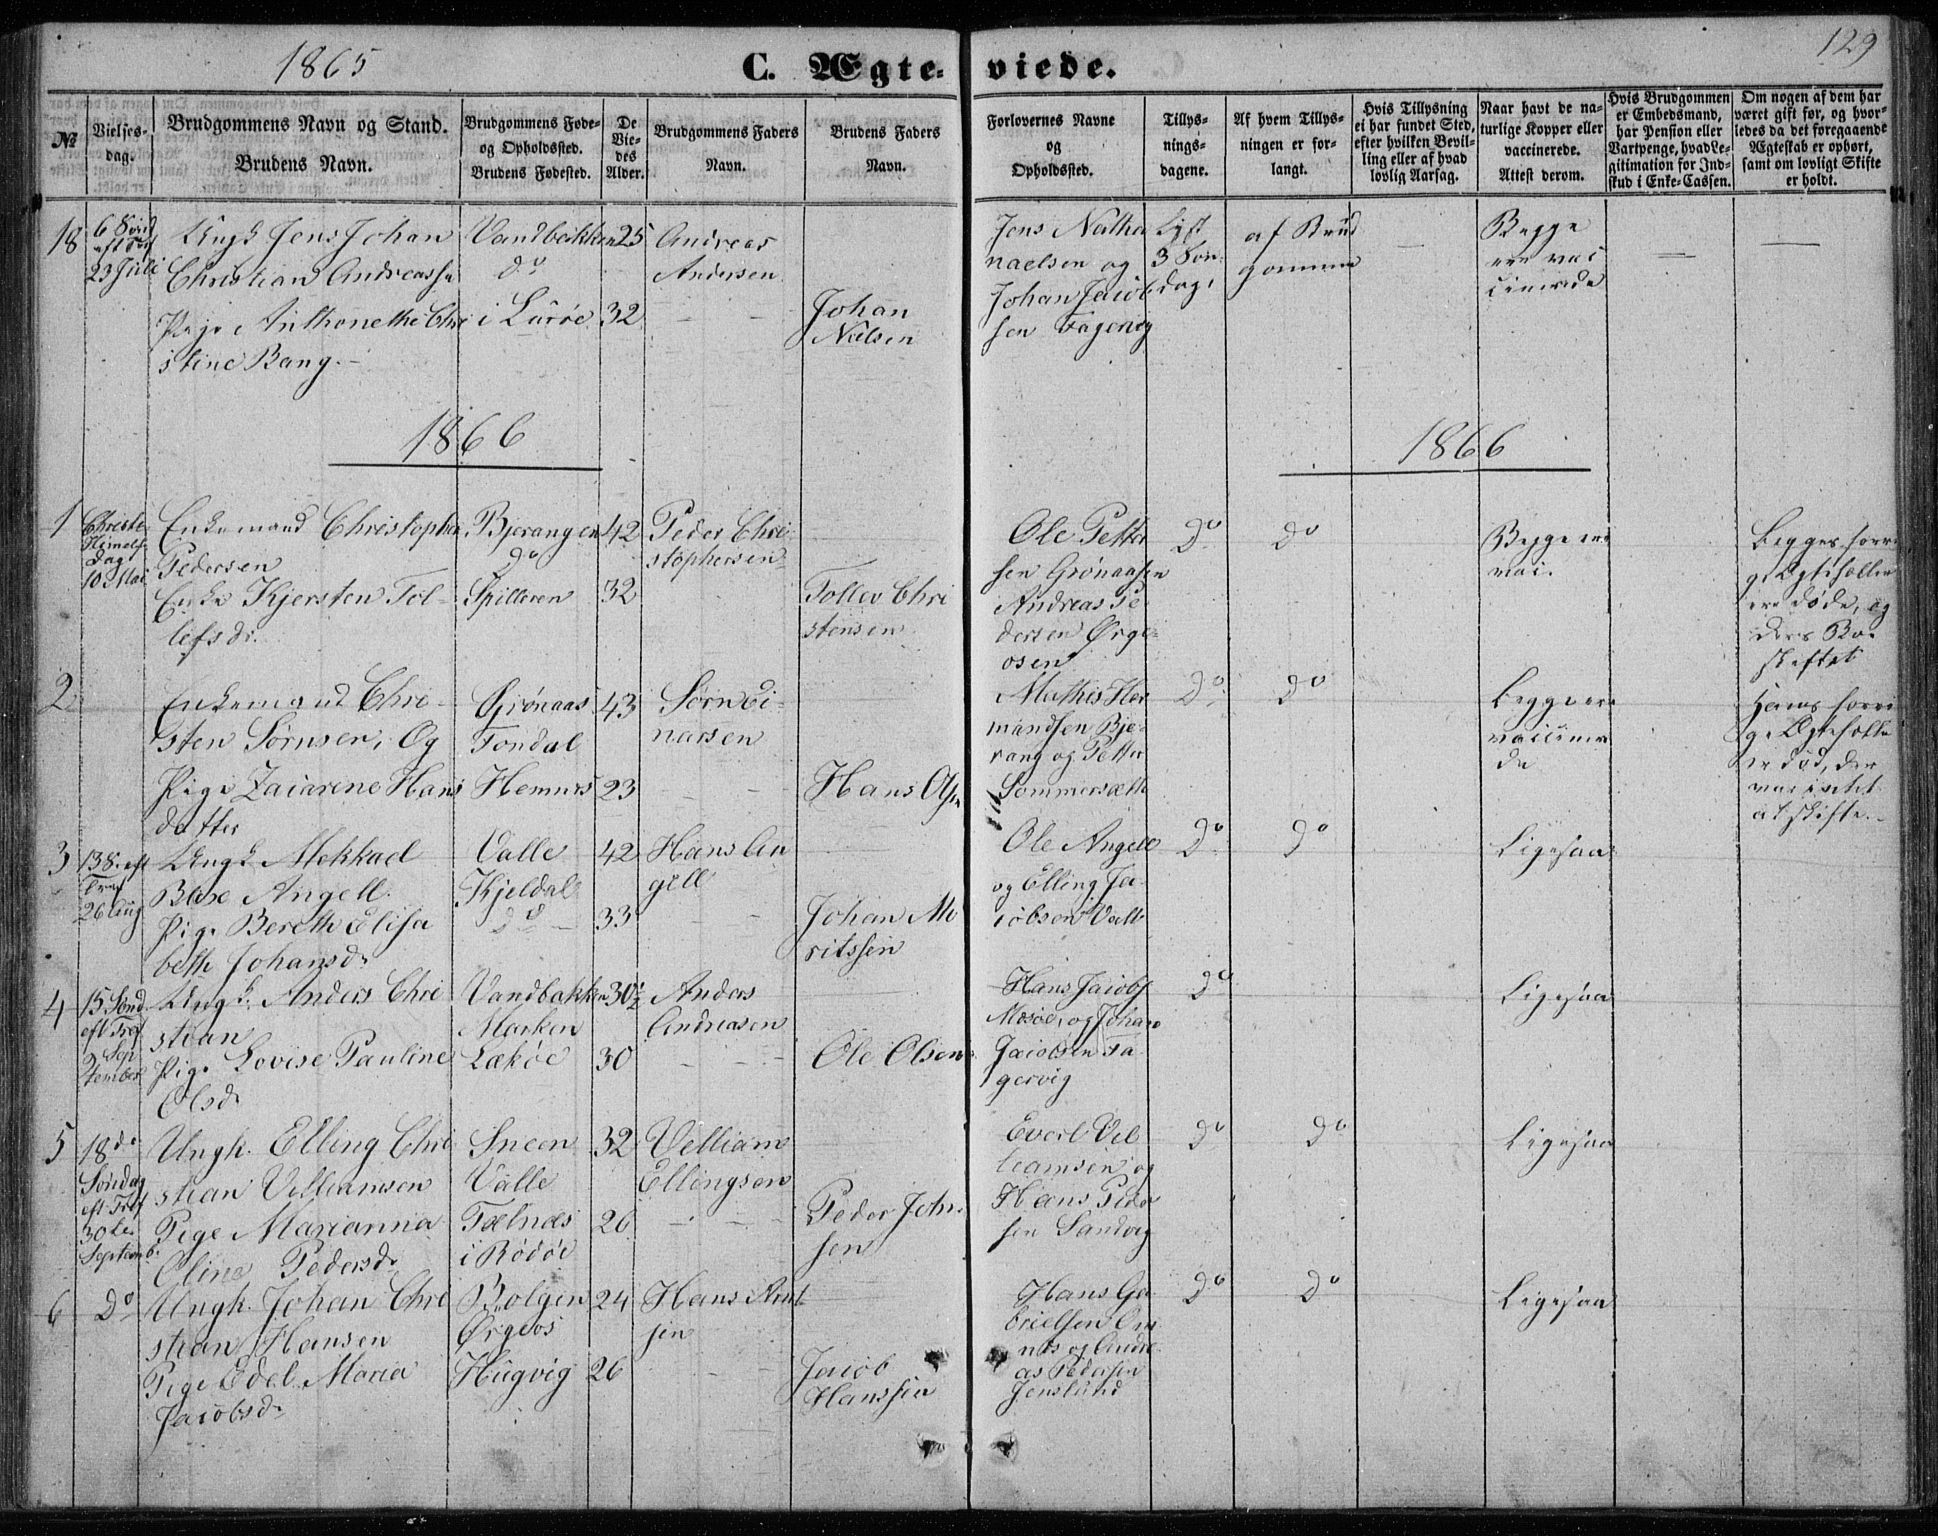 1865
C. Ægte-viede.
129
№
Vielses-dag.
Brudgommens Navn og Stand.
Brudens Navn.
Brudgommens Føde-og Opholdssted.
Brudens Fødested.
De Vie-des Alder.
Brudgommens Faders Navn.
Brudens Faders Navn.
Forlovernes Navne og Opholdssted.
Tillys-nings-dagene.
Af hvem Tillys-ningen er for-langt.
Hvis Tillysning ei har fundet Sted, efter hvilken Bevil-ling eller af hvad lovlig Aarsag.
Naar havt de na-turlige Kopper eller vaccinerede. Attest derom.
Hvis Brudgommen er Embedsmand, har Pension eller Vartpenge, hvad Le-gitimation for Ind-skud i Enke-Cassen.
Om nogen af dem har været gift før, og hvor-ledes da det foregaaende Ægteskab er ophørt, samt om lovligt Skifte er holdt.
18
6 Sønd
eft Tref
23 Juli
Ungk Jens Johan
Christian Andreassen
Pige Anthonethe Chri
stine Bang.
Vandbakken
do
i Lurøe
25
32
Andreas
Andersen
Johan
Nielsen
Jens Natha
naelsen og
Johan Jacob
sen Fagervig
Lyst
3 Søn
dage
af Brud
gommen
Begge
ere vac
cinerede
1866
1866
1
Christi
Himelf.
Dag
10 Mai
Enkemand Christopher
Pedersen
Enke Kjersten Tol-
lefsdr.
Bjerangen
do
Spilleren
42
32
Peder Chri
stophersen
Tollev Chri
stensen
Ole Petter
sen Grønaasen
Andreas Pe
dersen Ørge-
osen
do
do
Begge ere
vac.
Begges forri
ge Ægtefæller
ere døde, og
deres Bo
skiftet
2
Enkemand Chri-
sten Sørnsen, Og
Pige Zacarine Hans
datter
Grønaas
Tondal
Hemnes
43
23
Sørn Ei-
narsen
Hans Olsen
Mathis Her
mandsen Bje-
rang og Petter
Sommersæth
do
do
Begge ere
vaccinere
de
Hans forri
ge Ægtefælle
er død, der
var intet
at skifte.
3
13 S. eft
Tref
26 Aug
Ungk Mekkael
Baxe Angell
Pige Bereth Elisa
beth Johansdr
Valle
Kjeldal
do
42
33
Hans An
gell
Johan Mo
ritssen
Ole Angell
og Elling Ja-
cobsen Valle
do
do
Ligesaa
4
15 Sønd
eft Tref
2 Sep
tember
Ungk. Anders Chri
stian
Pige Lovise Pauline
Olsdr
Vandbakken
Marken
30½
30
Anders
Andreasen
Ole Olsen
Hans Jacobs
Mosøe, og Johan
Jacobsen Fa
gervig
do
Ligesaa
5
18de
Søndag
eft Tref
30te
Septemb.
Ungk. Elling Chri
stian Velliamsen
Pige Marianna
Oline Pedersdr
Sneen
Valle
Tælnæs
i Rødøe
32
26
Velliam
Ellingsen
Peder Joh-
sen
Evert Vel
liamsen og
Hans Peder
sen Sandvig
do
do
Ligesaa
6
do
Ungk. Johan Chri
stian Hansen
Pige Edel Maria
Jacobsdr
Bolgen
Ørgeos
Hugvig
24
26
Hans Arnt
sen
Jacob
Hanssen
Hans Ga
brielsen Em
nes og Andre
as Pedersen
Jenslund
do
do
Ligesaa